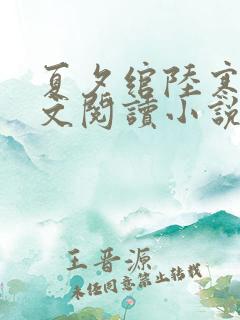 夏夕綰陸寒
文閱讀小說
王晋源
未经同意禁止转载